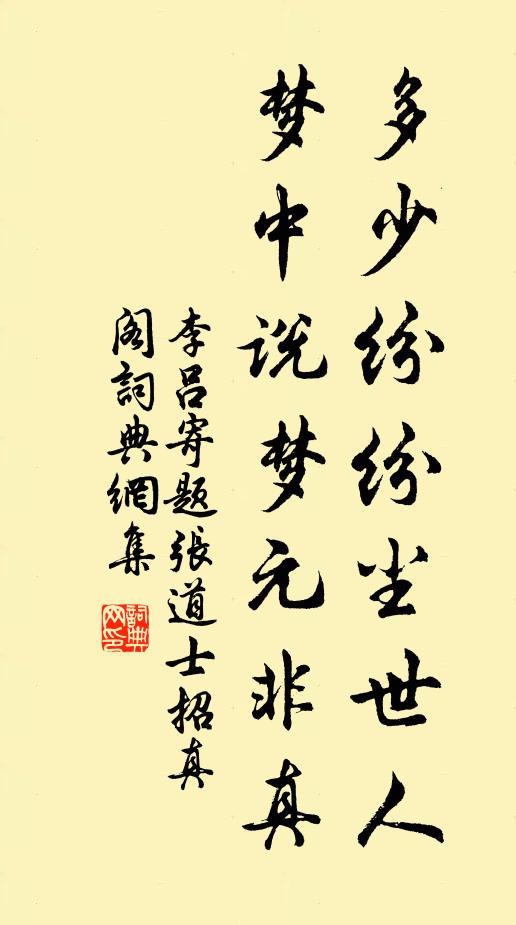 多少纷纷尘世人
梦中说梦元非真
李吕寄题張道士招真
阁詞典網集
詞典
网印